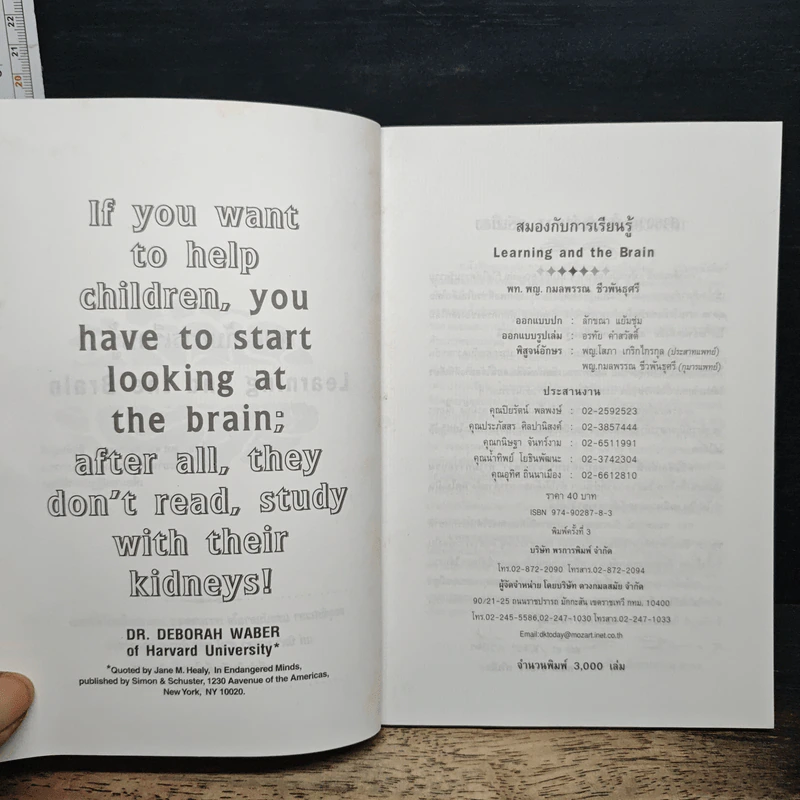 If you want
to help
children, you
have to start
looking at
the brain;
after all, they
don't read, study
with their
kidneys!
DR. DEBORAH WABER
of Harvard University*
*Quoted by Jane M. Healy, In Endangered Minds,
published by Simon & Schuster, 1230 Aavenue of the Americas,
New York, NY 10020.
สมองกับการเรียนรู้
Learning and the Brain
พท. พญ. กมลพรรณ ชีวพันธุศรี
ออกแบบปก : ลักขณา แย้มชุ่ม
ออกแบบรูปเล่ม : อรทัย คำสวัสดิ์
พิสูจน์อักษร : พญ.โสภา เกริกไกรกุล (ประสาทแพทย์)
พญ.กมลพรรณ ชีวพันธุศรี (กุมารแพทย์)
ประสานงาน
คุณปิยรัตน์ พลพงษ์ : 02-2592523
คุณประภัสสร ศิลปานิสงค์ : 02-3857444
คุณกนิษฐา จันทร์งาม : 02-6511991
คุณน้ำทิพย์ โยธินพัฒนะ : 02-3742304
คุณอุทิศ ถิ่นนาเมือง : 02-6612810
ราคา 40 บาท
ISBN 974-90287-8-3
พิมพ์ครั้งที่ 3
บริษัท พรการพิมพ์ จำกัด
โทร.02-872-2090 โทรสาร.02-872-2094
ผู้จัดจำหน่าย โดยบริษัท ดวงกมลสมัย จำกัด
90/21-25 ถนนราชปรารถ มักกะสัน เขตราชเทวี กทม. 10400
โทร.02-245-5586,02-247-1030 โทรสาร.02-247-1033
Email:dktoday@mozart.inet.co.th
จำนวนพิมพ์ 3,000 เล่ม
22
21
20